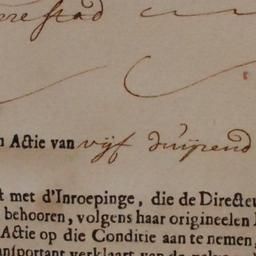 erestad
n Actie van vijf duijzend
t met d'Inroepinge, die de Directeu
behooren, volgens haar origineelen
Actie op die Conditie aan te nemen,
ansportant verklaart van de